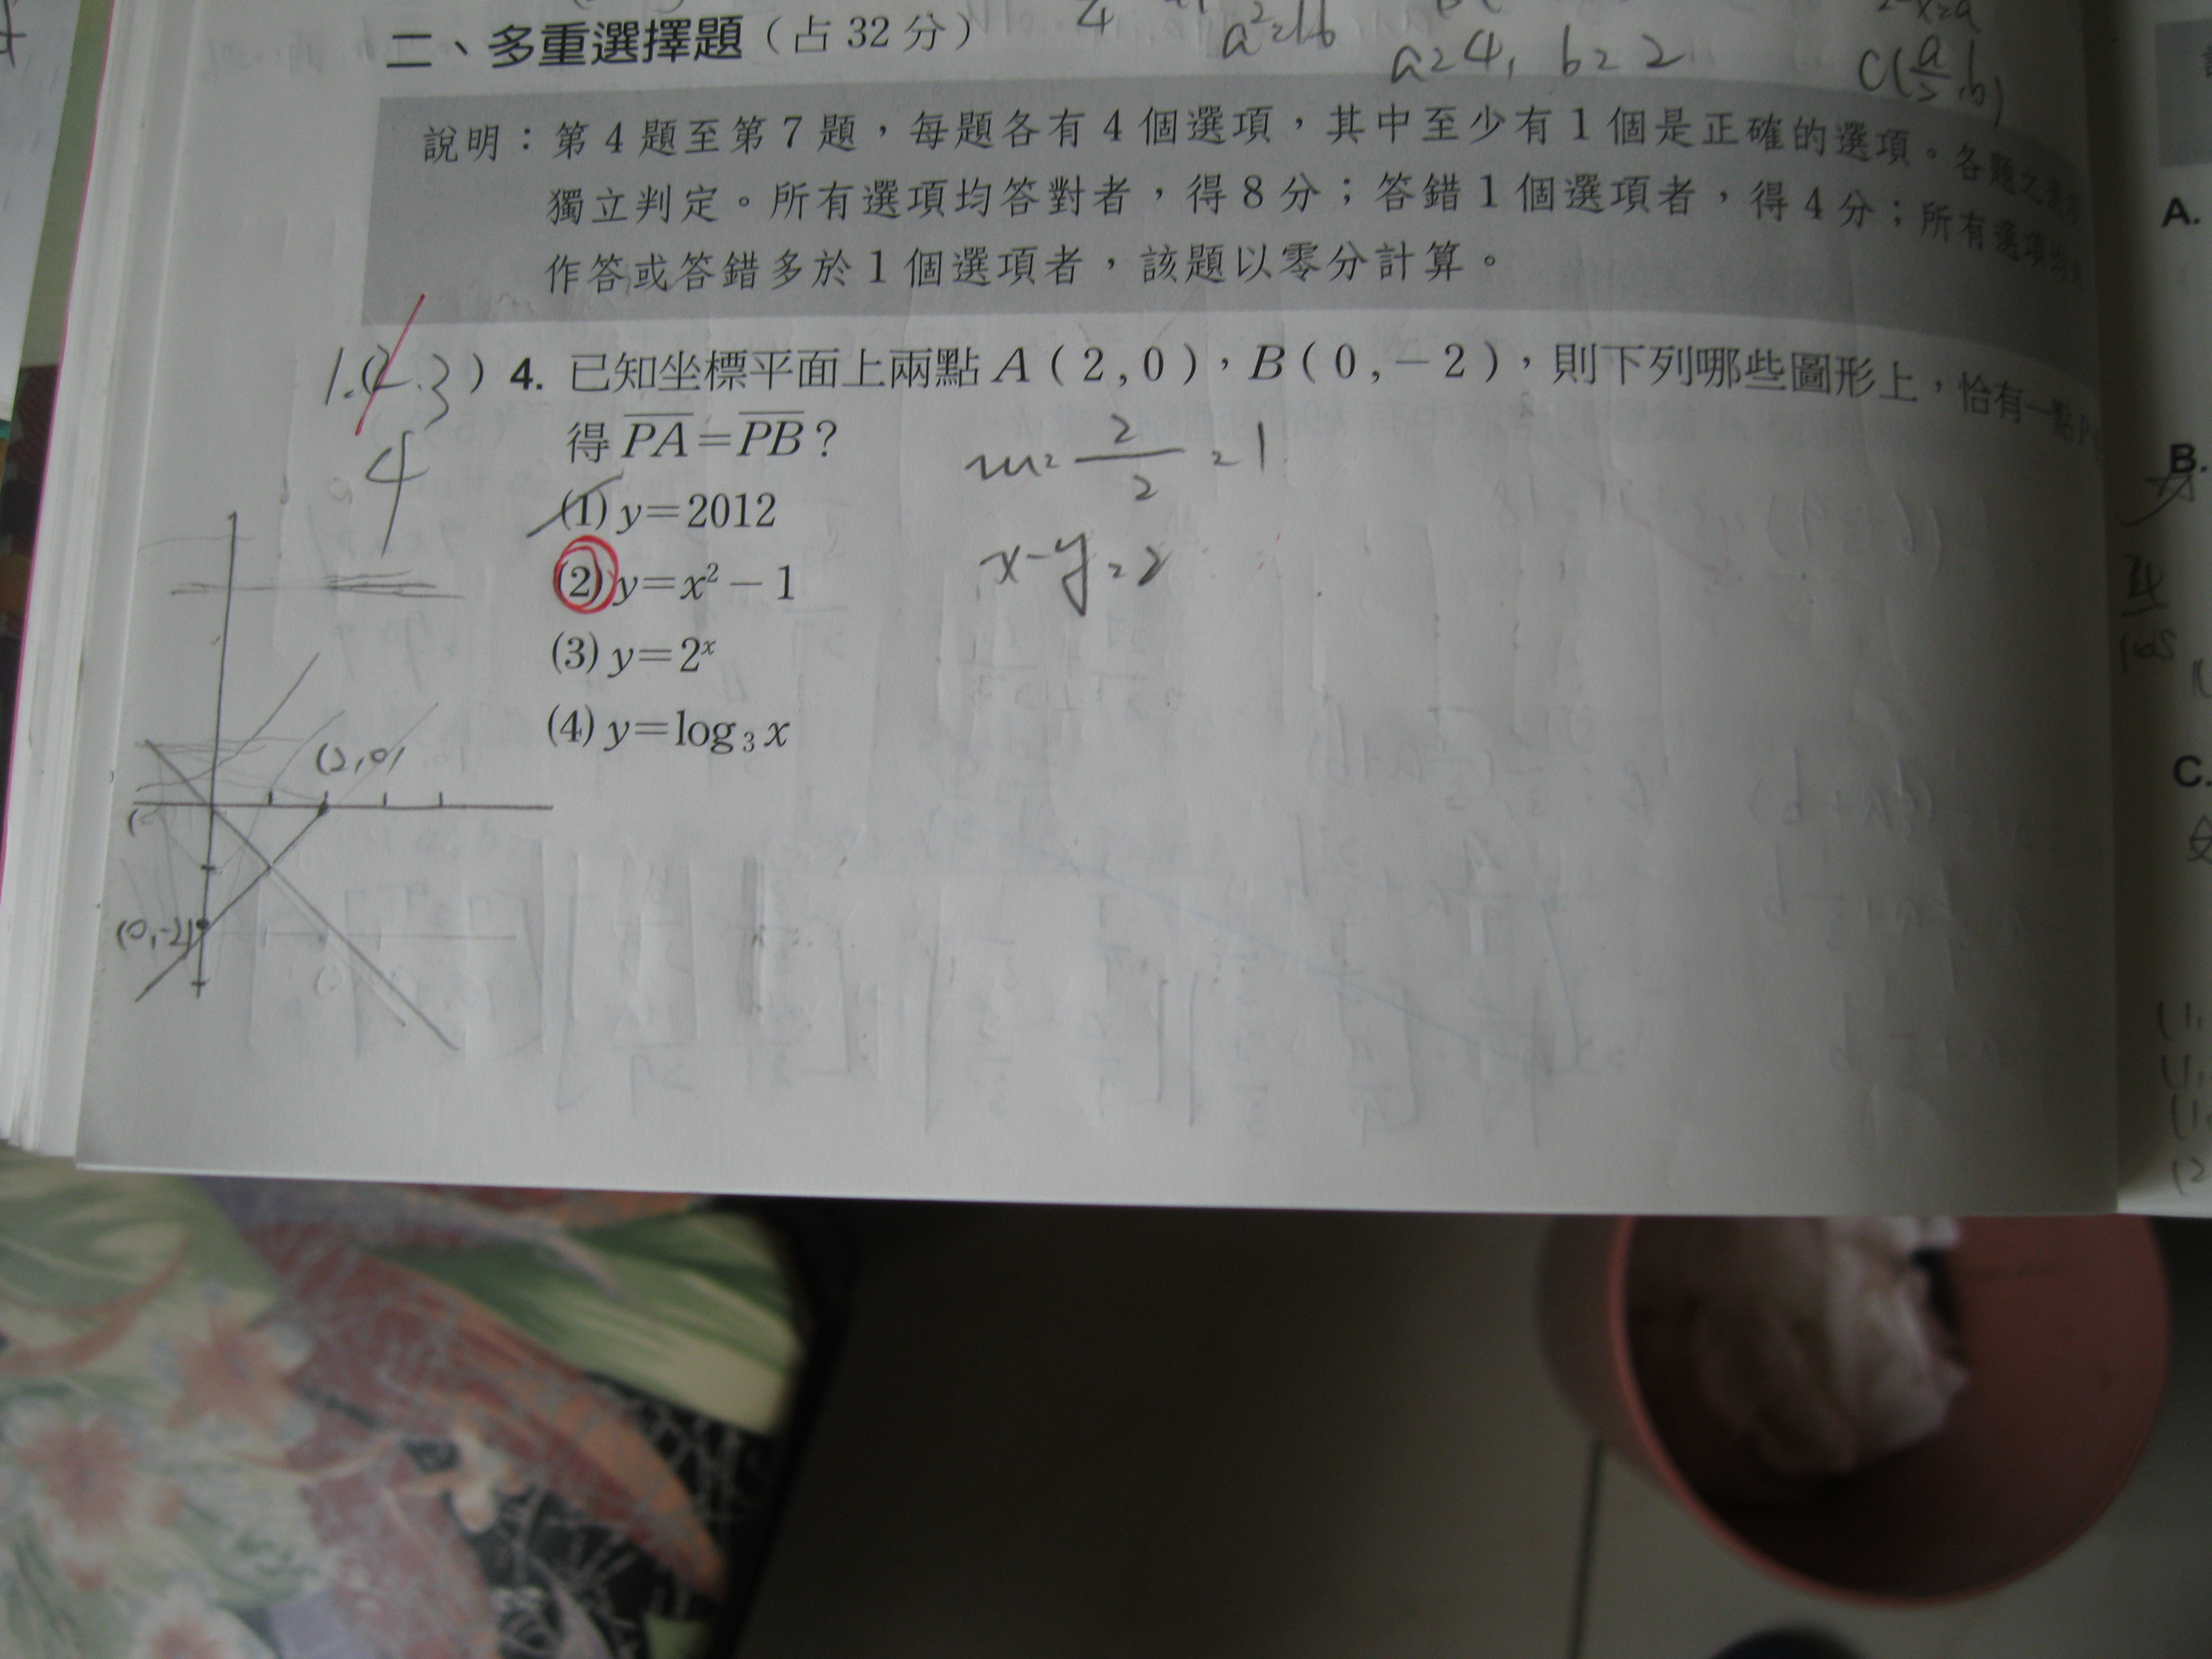 二、多重選擇題(占 32 分)
a²=16
a=4, b=2
C(a/2, b)
說明:第 4 題至第 7 題,每題各有 4 個選項,其中至少有 1 個是正確的選項。各題之選項
獨立判定。所有選項均答對者,得 8 分;答錯 1 個選項者,得 4 分;所有選項均未
作答或答錯多於 1 個選項者,該題以零分計算。
4. 已知坐標平面上兩點 A(2,0),B(0,-2),則下列哪些圖形上,恰有一點P
得 PA=PB?
m=2/2=1
(1) y=2012
x-y=2
(2) y=x²-1
(3) y=2ˣ
(4) y=log₃x
1.(2.3)
4
(2,0)
(0,-2)
A.
B.
C.